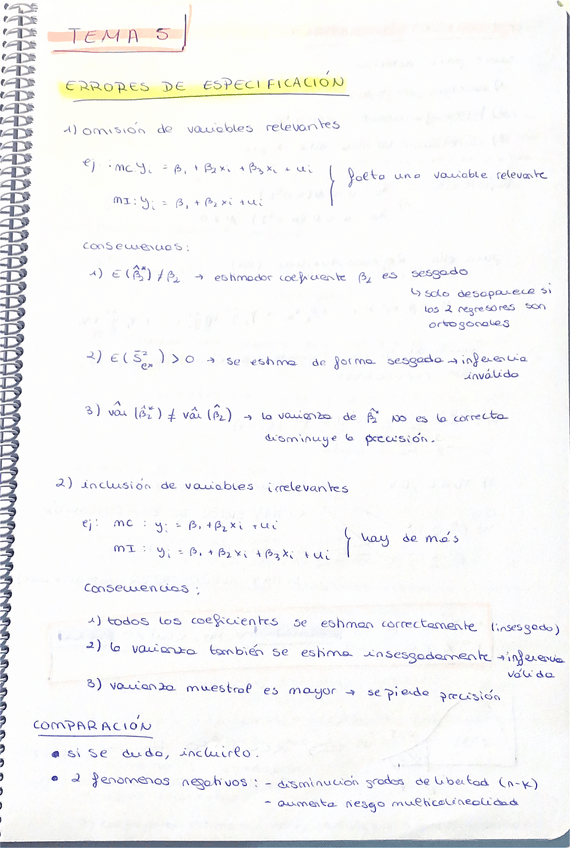 TEMA 5
ERRORES DE ESPECIFICACIÓN
1) omisión de variables relevantes
ej: · MC y_i = β_1 + β_2x_i + β_3x_i + u_i
falta una variable relevante
MI: y_i = β_1 + β_2x_i + u_i
consecuencias:
1) E(β̂_2*) ≠ β_2 → estimador coeficiente β_2 es sesgado
↳ solo desaparece si
los 2 regresores son
ortogonales
2) E(S²_e*) > 0 → se estima de forma sesgada → inferencia
inválida
3) vâr (β̂_2*) ≠ vâr (β̂_2) → la varianza de β̂_2* NO es la correcta
disminuye la precisión.
2) inclusión de variables irrelevantes
ej: MC : y_i = β_1 + β_2x_i + u_i
hay de más
MI : y_i = β_1 + β_2x_i + β_3x_i + u_i
consecuencias:
1) todos los coeficientes se estiman correctamente (insesgado)
2) la varianza también se estima insesgadamente → inferencia
válida
3) varianza muestral es mayor → se pierde precisión
COMPARACIÓN
• si se duda, incluirlo.
• 2 fenomenos negativos : - disminución grados de libertad (n-k)
- aumenta riesgo multicolinealidad